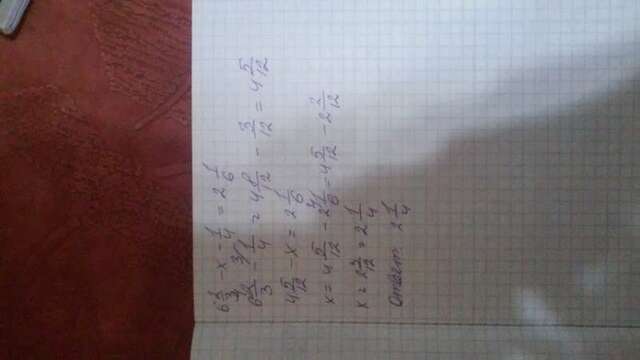 6 2/3 - x - 1/4 = 2 1/6
6 2/3 - 1/4 = 4 8/12 - 3/12 = 4 5/12
4 5/12 - x = 2 1/6
x = 4 5/12 - 2 1/6 = 4 5/12 - 2 2/12
x = 2 3/12 = 2 1/4
Ответ: 2 1/4